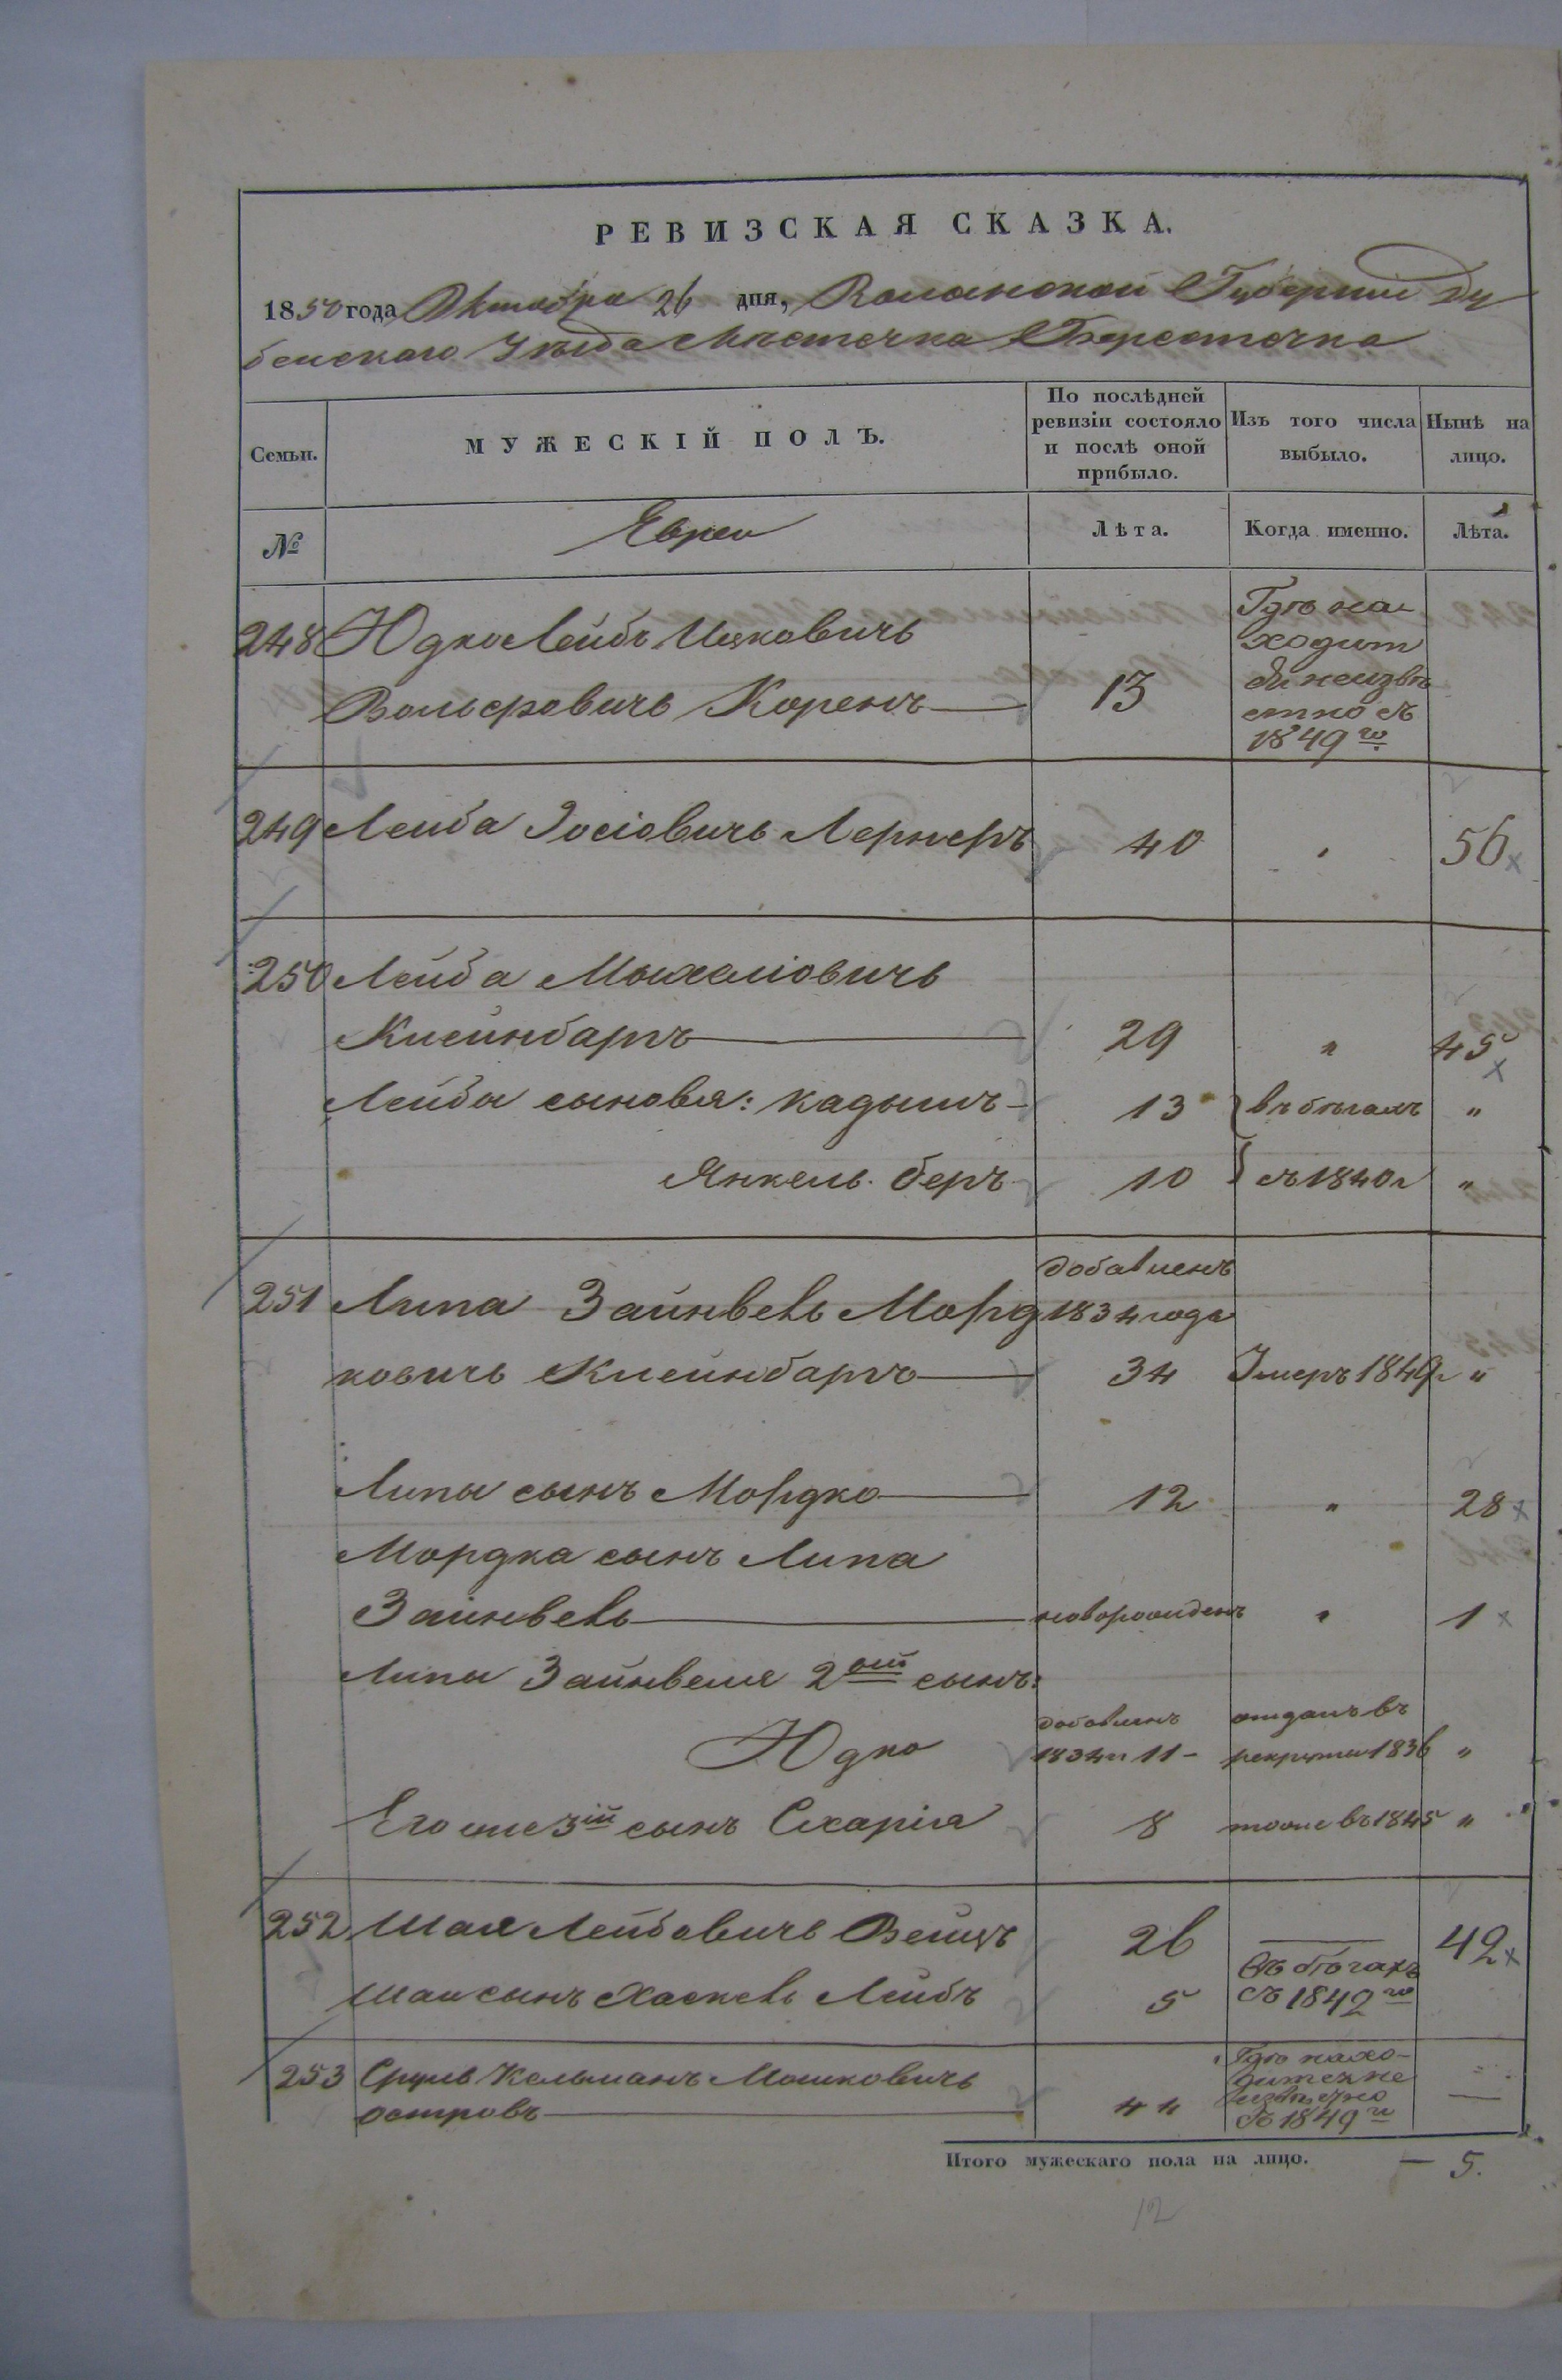 РЕВИЗСКАЯ СКАЗКА.
1850 года Октября 26 дня, Волынской Губернии Ду
бенскаго Уѣзда Мѣстечка Берестечка
Семьи.
МУЖЕСКІЙ ПОЛЪ.
По послѣдней ревизіи состояло и послѣ оной прибыло.
Изъ того числа выбыло.
Нынѣ на лицо.
№
Евреи
Лѣта.
Когда именно.
Лѣта.
248 Юдко Лейбъ Ицковичь
Вольфовичь Коренъ 13
Гдѣ на
ходит
ся неизвѣ
стно съ
1849 го
249 Лейба Іосіовичь Лернеръ 40 " 56
250 Лейба Мыхеліовичь
Клейнбаргъ 29 " 45
Лейбы сыновья: Кадышъ 13 въ бѣгахъ "
Янкель Беръ 10 съ 1840 г "
добавленъ
251 Липа Зайнвель Морд 1834 года
ковичь Клейнбаргъ 34 Умеръ 1849 г "
Липы сынъ Мордко 12 " 28
Мордка сынъ Липа
Зайнвель новорожденъ " 1
Липы Зайнвеля 2ой сынъ:
добавленъ отданъ въ
Юдко 1834 г 11 - рекруты 1836 "
Его же 3ій сынъ Схарія 8 тоже въ 1845 "
252 Шая Лейбовичь Вейцъ 26 — 42
Шаи сынъ Хаскель Лейбъ 5
Въ бѣгахъ
съ 1842 го
253 Сруль Кельманъ Мошковичь
Островъ 44
Гдѣ нахо-
дится не
извѣстно
съ 1849 го
—
Итого мужескаго пола на лицо. — 5.
12